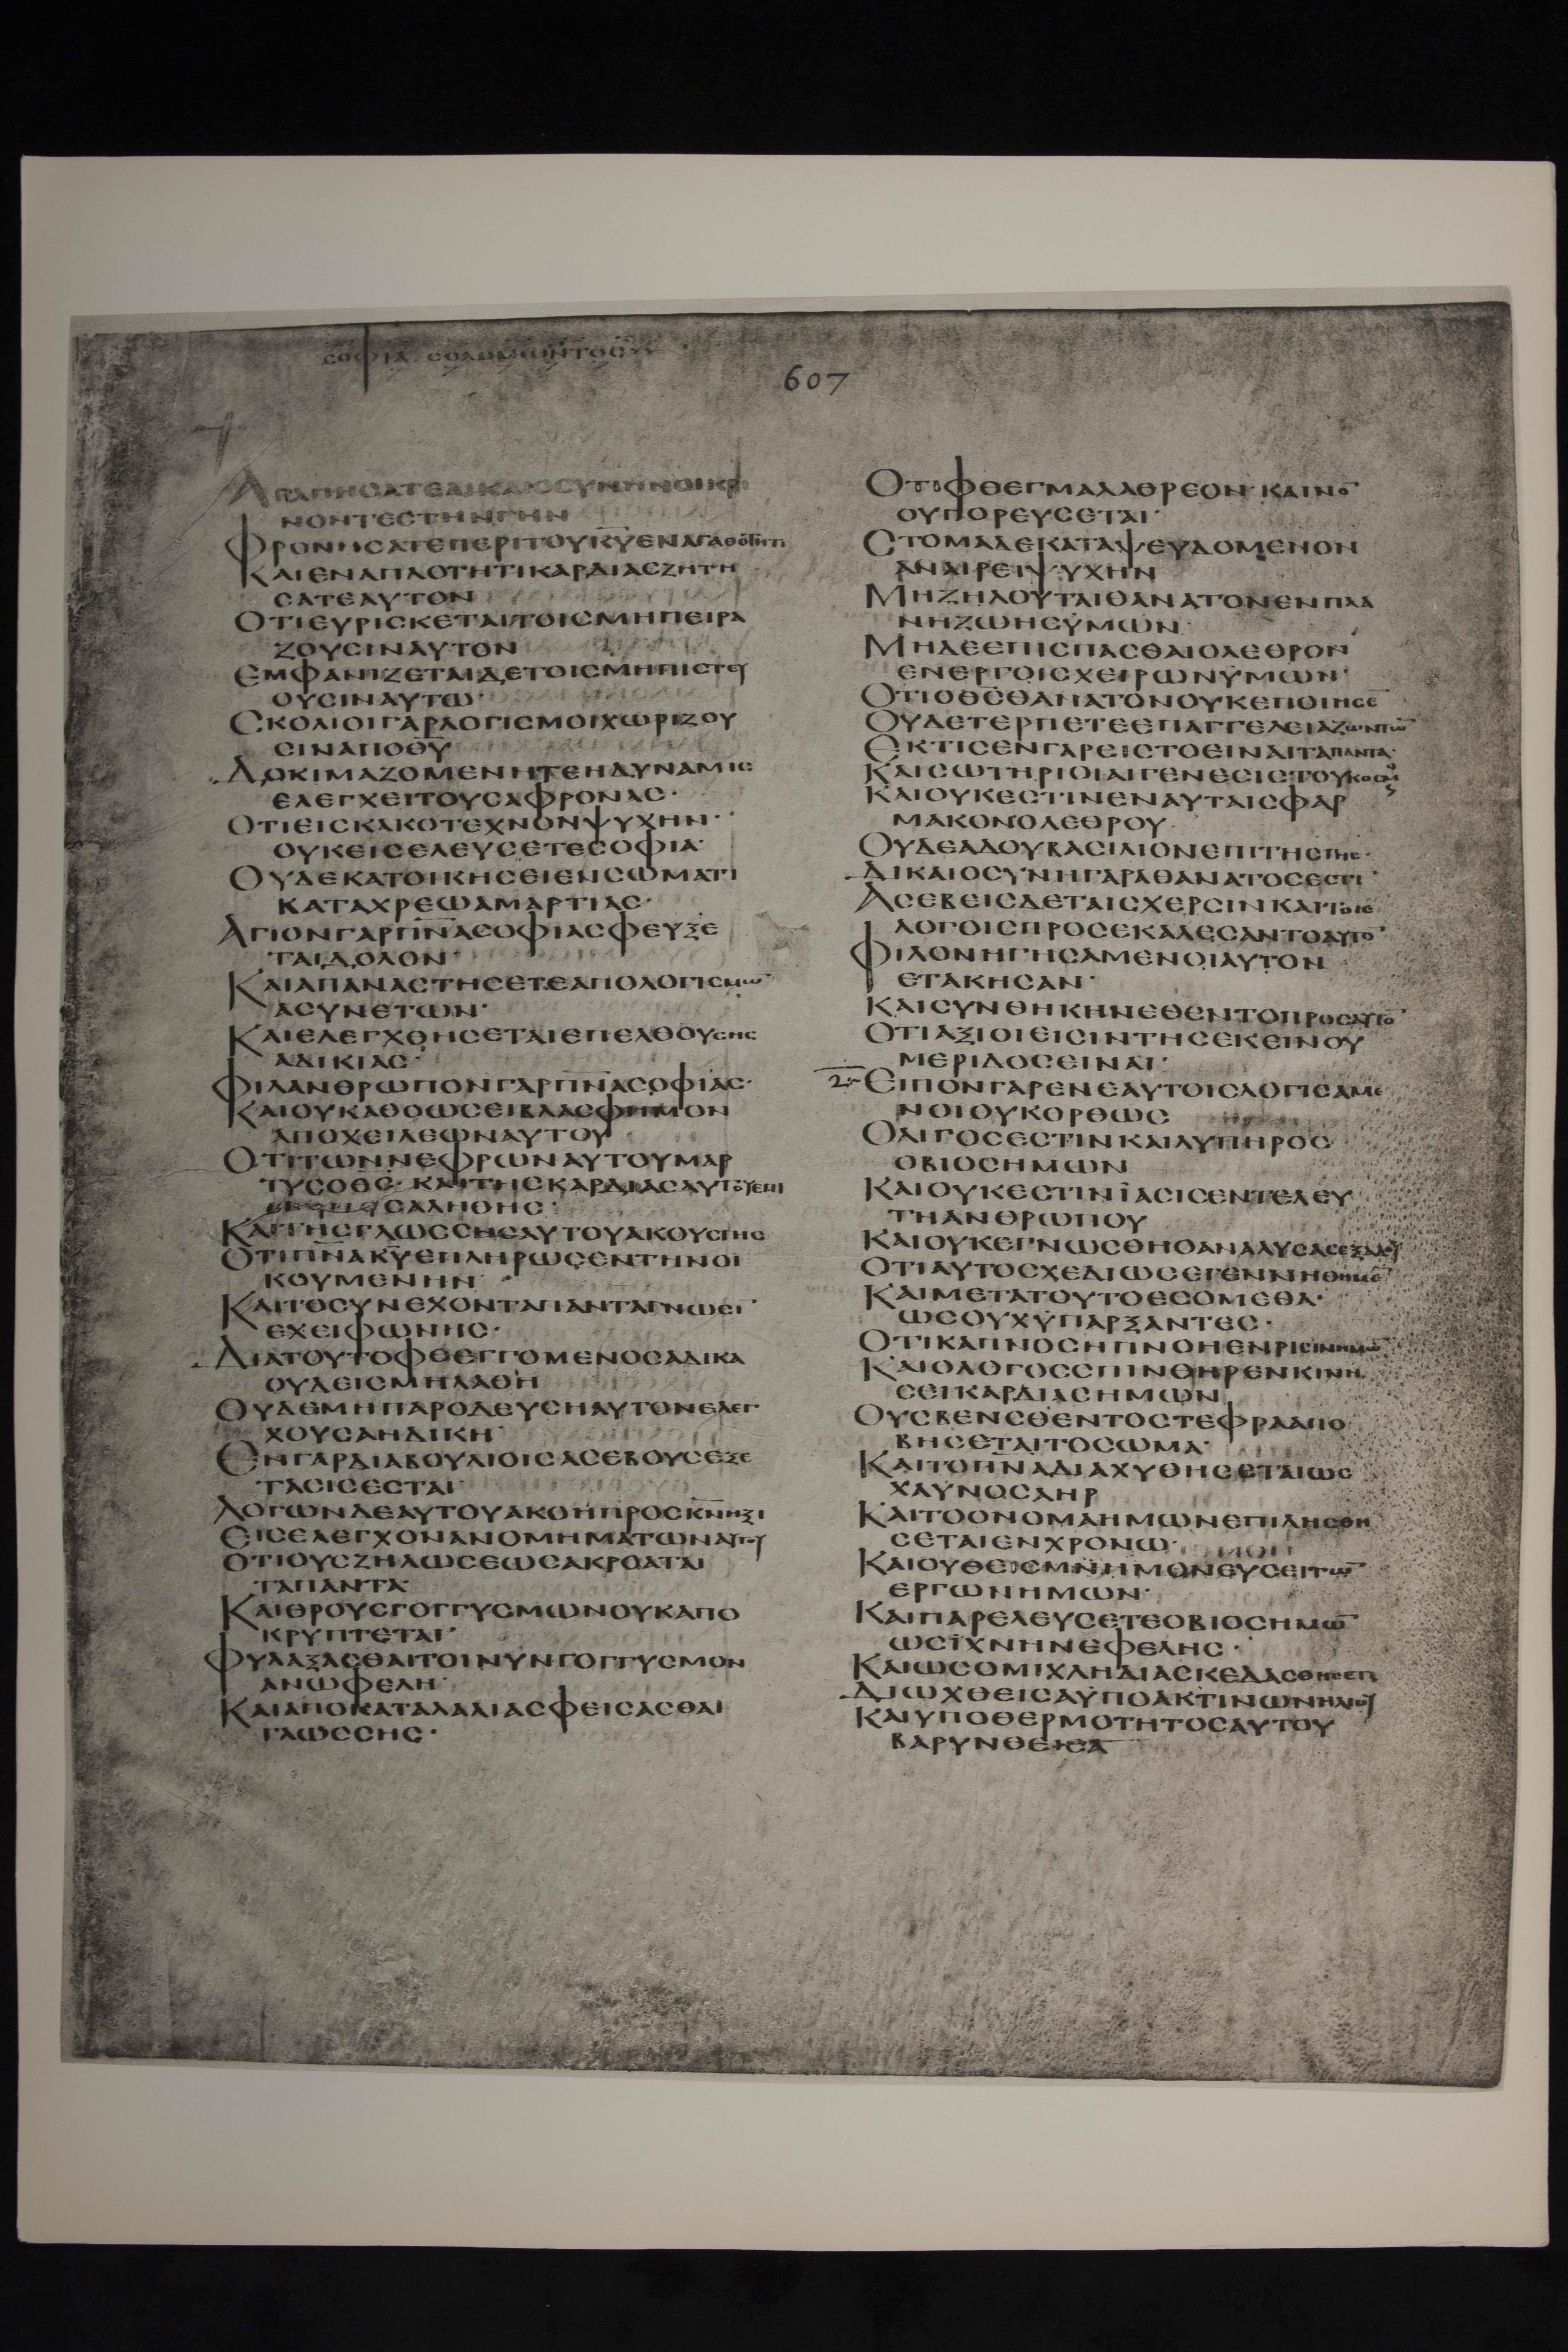 ΣΟΦΙΑ ΣΟΛΟΜΩΝΤΟΣ
607
ΑΓΑΠΗΣΑΤΕΔΙΚΑΙΟΣΥΝΗΝΟΙΚΡΙ
ΝΟΝΤΕΣΤΗΝΓΗΝ
ΦΡΟΝΗΣΑΤΕΠΕΡΙΤΟΥΚΥΕΝΑΓΑΘΟΤΗΤΙ
ΚΑΙΕΝΑΠΛΟΤΗΤΙΚΑΡΔΙΑΣΖΗΤΗ
ΣΑΤΕΑΥΤΟΝ
ΟΤΙΕΥΡΙΣΚΕΤΑΙΤΟΙΣΜΗΠΕΙΡΑ
ΖΟΥΣΙΝΑΥΤΟΝ
ΕΜΦΑΝΙΖΕΤΑΙΔΕΤΟΙΣΜΗΠΙΣΤΕΥ
ΟΥΣΙΝΑΥΤΩ·
ΣΚΟΛΙΟΙΓΑΡΛΟΓΙΣΜΟΙΧΩΡΙΖΟΥ
ΣΙΝΑΠΟΘΥ
ΔΟΚΙΜΑΖΟΜΕΝΗΤΕΗΔΥΝΑΜΙΣ
ΕΛΕΓΧΕΙΤΟΥΣΑΦΡΟΝΑΣ·
ΟΤΙΕΙΣΚΑΚΟΤΕΧΝΟΝΨΥΧΗΝ·
ΟΥΚΕΙΣΕΛΕΥΣΕΤΕΣΟΦΙΑ·
ΟΥΔΕΚΑΤΟΙΚΗΣΕΙΕΝΣΩΜΑΤΙ
ΚΑΤΑΧΡΕΩΑΜΑΡΤΙΑΣ·
ΑΓΙΟΝΓΑΡΠΝΑΣΟΦΙΑΣΦΕΥΞΕ
ΤΑΙΔΟΛΟΝ·
ΚΑΙΑΠΑΝΑΣΤΗΣΕΤΕΑΠΟΛΟΓΙΣΜΩ̅
ΑΣΥΝΕΤΩΝ·
ΚΑΙΕΛΕΓΧΘΗΣΕΤΑΙΕΠΕΛΘΟΥΣΗΣ
ΑΔΙΚΙΑΣ·
ΦΙΛΑΝΘΡΩΠΟΝΓΑΡΠΝΑΣΟΦΙΑΣ·
ΚΑΙΟΥΚΑΘΟΩΣΕΙΒΛΑΣΦΗΜΟΝ
ΑΠΟΧΕΙΛΕΩΝΑΥΤΟΥ
ΟΤΙΤΩΝΝΕΦΡΩΝΑΥΤΟΥΜΑΡ
ΤΥΣΟΘΣ· ΚΑΙΤΗΣΚΑΡΔΙΑΣΑΥΤΟΥΕΠΙ
ΣΑΛΗΘΗΣ·
ΚΑΙΤΗΣΓΛΩΣΣΗΣΑΥΤΟΥΑΚΟΥΣΤΗΣ
ΟΤΙΠΝΑΚΥΕΠΛΗΡΩΣΕΝΤΗΝΟΙ
ΚΟΥΜΕΝΗΝ
ΚΑΙΤΟΣΥΝΕΧΟΝΤΑΠΑΝΤΑΓΝΩΣΙ̅
ΕΧΕΙΦΩΝΗΣ·
ΔΙΑΤΟΥΤΟΦΘΕΓΓΟΜΕΝΟΣΑΔΙΚΑ
ΟΥΔΕΙΣΜΗΛΑΘΗ
ΟΥΔΕΜΗΠΑΡΟΔΕΥΣΗΑΥΤΟΝΕΛΕΓ
ΧΟΥΣΑΗΔΙΚΗ
ΕΝΓΑΡΔΙΑΒΟΥΛΙΟΙΣΑΣΕΒΟΥΣΕΞΕ
ΤΑΣΙΣΕΣΤΑΙ
ΛΟΓΩΝΔΕΑΥΤΟΥΑΚΟΗΠΡΟΣΚΝΗΞΙ
ΕΙΣΕΛΕΓΧΟΝΑΝΟΜΗΜΑΤΩΝΑΥΤΟΥ
ΟΤΙΟΥΣΖΗΛΩΣΕΩΣΑΚΡΟΑΤΑΙ
ΤΑΠΑΝΤΑ·
ΚΑΙΘΡΟΥΣΓΟΓΓΥΣΜΩΝΟΥΚΑΠΟ
ΚΡΥΠΤΕΤΑΙ·
ΦΥΛΑΞΑΣΘΑΙΤΟΙΝΥΝΓΟΓΓΥΣΜΟΝ
ΑΝΩΦΕΛΗ·
ΚΑΙΑΠΟΚΑΤΑΛΑΛΙΑΣΦΕΙΣΑΣΘΑΙ
ΓΛΩΣΣΗΣ·
ΟΤΙΦΘΕΓΜΑΛΑΘΡΕΟΝΚΑΙΝΟ̅
ΟΥΠΟΡΕΥΣΕΤΑΙ·
ΣΤΟΜΑΔΕΚΑΤΑΨΕΥΔΟΜΕΝΟΝ
ΑΝΑΙΡΕΙΨΥΧΗΝ
ΜΗΖΗΛΟΥΤΑΙΘΑΝΑΤΟΝΕΝΠΛΑ
ΝΗΖΩΗΣΥΜΩΝ
ΜΗΔΕΕΠΙΣΠΑΣΘΑΙΟΛΕΘΡΟΝ
ΕΝΕΡΓΟΙΣΧΕΙΡΩΝΥΜΩΝ·
ΟΤΙΟΘΣΘΑΝΑΤΟΝΟΥΚΕΠΟΙΗΣΕ̅
ΟΥΔΕΤΕΡΠΕΤΕΕΠΑΓΓΕΛΕΙΑΖΩΝΤΩ̅
ΕΚΤΙΣΕΝΓΑΡΕΙΣΤΟΕΙΝΑΙΤΑΠΑΝΤΑ·
ΚΑΙΣΩΤΗΡΙΟΙΑΙΓΕΝΕΣΙΣΤΟΥΚΟΣΜΟΥ
ΚΑΙΟΥΚΕΣΤΙΝΕΝΑΥΤΑΙΣΦΑΡ
ΜΑΚΟΝΟΛΕΘΡΟΥ
ΟΥΔΕΑΔΟΥΒΑΣΙΛΙΟΝΕΠΙΤΗΣΓΗΣ·
ΔΙΚΑΙΟΣΥΝΗΓΑΡΑΘΑΝΑΤΟΣΕΣΤΙ
ΑΣΕΒΕΙΣΔΕΤΑΙΣΧΕΡΣΙΝΚΑΙΤΟΙΣ
ΛΟΓΟΙΣΠΡΟΣΕΚΑΛΕΣΑΝΤΟΑΥΤΟ̅
ΦΙΛΟΝΗΓΗΣΑΜΕΝΟΙΑΥΤΟΝ
ΕΤΑΚΗΣΑΝ·
ΚΑΙΣΥΝΘΗΚΗΝΕΘΕΝΤΟΠΡΟΣΑΥΤΟ̅
ΟΤΙΑΞΙΟΙΕΙΣΙΝΤΗΣΕΚΕΙΝΟΥ
ΜΕΡΙΔΟΣΕΙΝΑΙ·
2 ΕΙΠΟΝΓΑΡΕΝΕΑΥΤΟΙΣΛΟΓΙΣΑΜΕ
ΝΟΙΟΥΚΟΡΘΩΣ
ΟΛΙΓΟΣΕΣΤΙΝΚΑΙΛΥΠΗΡΟΣ
ΟΒΙΟΣΗΜΩΝ
ΚΑΙΟΥΚΕΣΤΙΝΪΑΣΙΣΕΝΤΕΛΕΥ
ΤΗΑΝΘΡΩΠΟΥ
ΚΑΙΟΥΚΕΓΝΩΣΘΗΟΑΝΑΛΥΣΑΣΕΞΑΔΟΥ
ΟΤΙΑΥΤΟΣΧΕΔΙΩΣΕΓΕΝΝΗΘΗΜΕ̅
ΚΑΙΜΕΤΑΤΟΥΤΟΕΣΟΜΕΘΑ·
ΩΣΟΥΧΫΠΑΡΞΑΝΤΕΣ·
ΟΤΙΚΑΠΝΟΣΗΠΝΟΗΕΝΡΙΣΙΝΗΜΩ̅
ΚΑΙΟΛΟΓΟΣΣΠΙΝΘΗΡΕΝΚΙΝΗ
ΣΕΙΚΑΡΔΙΑΣΗΜΩΝ
ΟΥΣΒΕΝΣΘΕΝΤΟΣΤΕΦΡΑΑΠΟ
ΒΗΣΕΤΑΙΤΟΣΩΜΑ·
ΚΑΙΤΟΠΝΑΔΙΑΧΥΘΗΣΕΤΑΙΩΣ
ΧΑΥΝΟΣΑΗΡ
ΚΑΙΤΟΟΝΟΜΑΗΜΩΝΕΠΙΛΗΣΘΗ
ΣΕΤΑΙΕΝΧΡΟΝΩ·
ΚΑΙΟΥΘΕΙΣΜΝΗΜΟΝΕΥΣΕΙΤΩ̅
ΕΡΓΩΝΗΜΩΝ·
ΚΑΙΠΑΡΕΛΕΥΣΕΤΕΟΒΙΟΣΗΜΩ̅
ΩΣΪΧΝΗΝΕΦΕΛΗΣ·
ΚΑΙΩΣΟΜΙΧΛΗΔΙΑΣΚΕΔΑΣΘΗΣΕΤΙ
ΔΙΩΧΘΕΙΣΑΫΠΟΑΚΤΙΝΩΝΗΛΙΟΥ
ΚΑΙΥΠΟΘΕΡΜΟΤΗΤΟΣΑΥΤΟΥ
ΒΑΡΥΝΘΕΙΣΑ